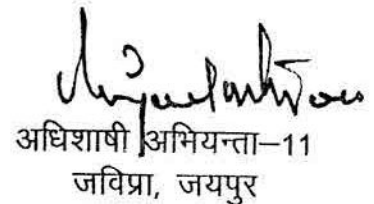 अधिशाषी अभियन्ता–11
जविप्रा, जयपुर